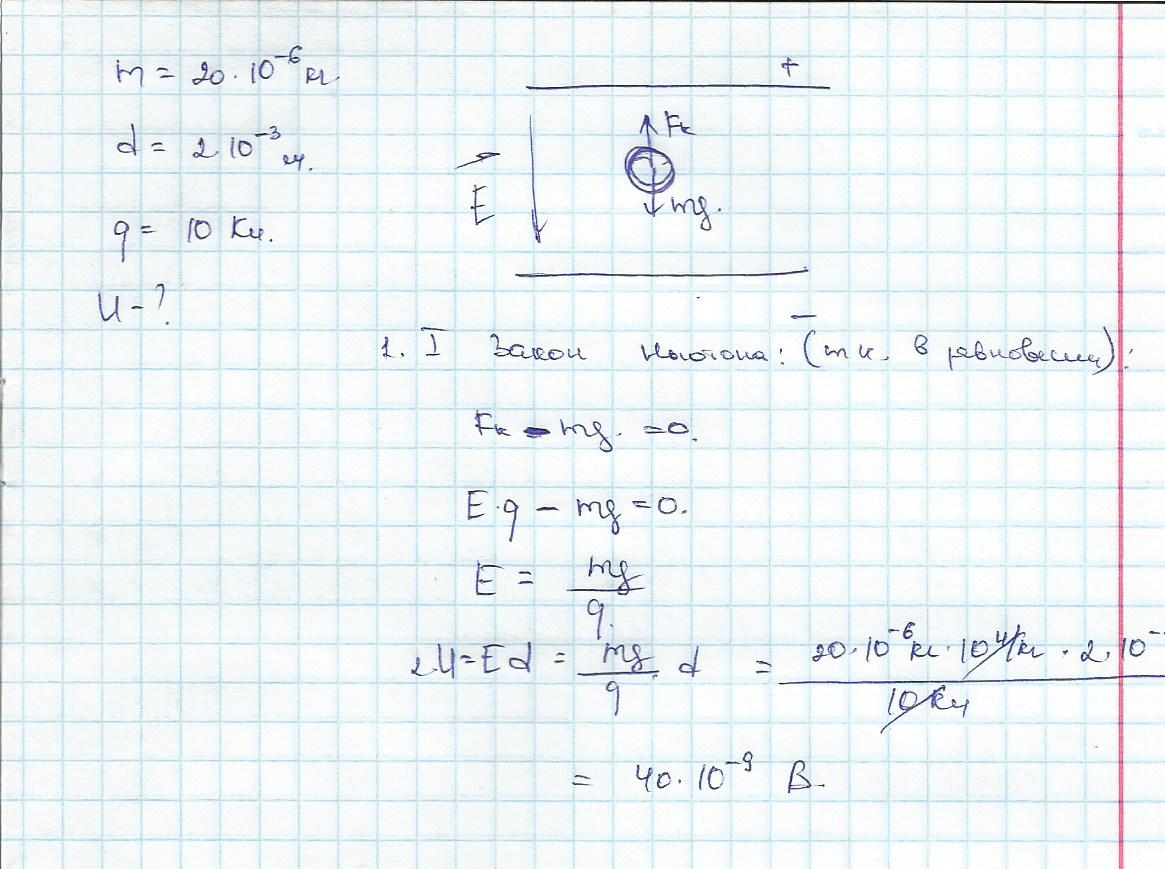 m = 20·10⁻⁶ кг
d = 2 10⁻³ м.
q = 10 Кл.
U - ?
+
Fк
mg.
E
−
1. I Закон Ньютона: (т к. в равновесии):
Fк - mg. = 0.
E·q − mg = 0.
E = mg / q.
2. U = Ed = mg / q · d = 20·10⁻⁶ кг · 10 Н/кг · 2 · 10⁻ / 10 Кл
= 40·10⁻⁹ В.